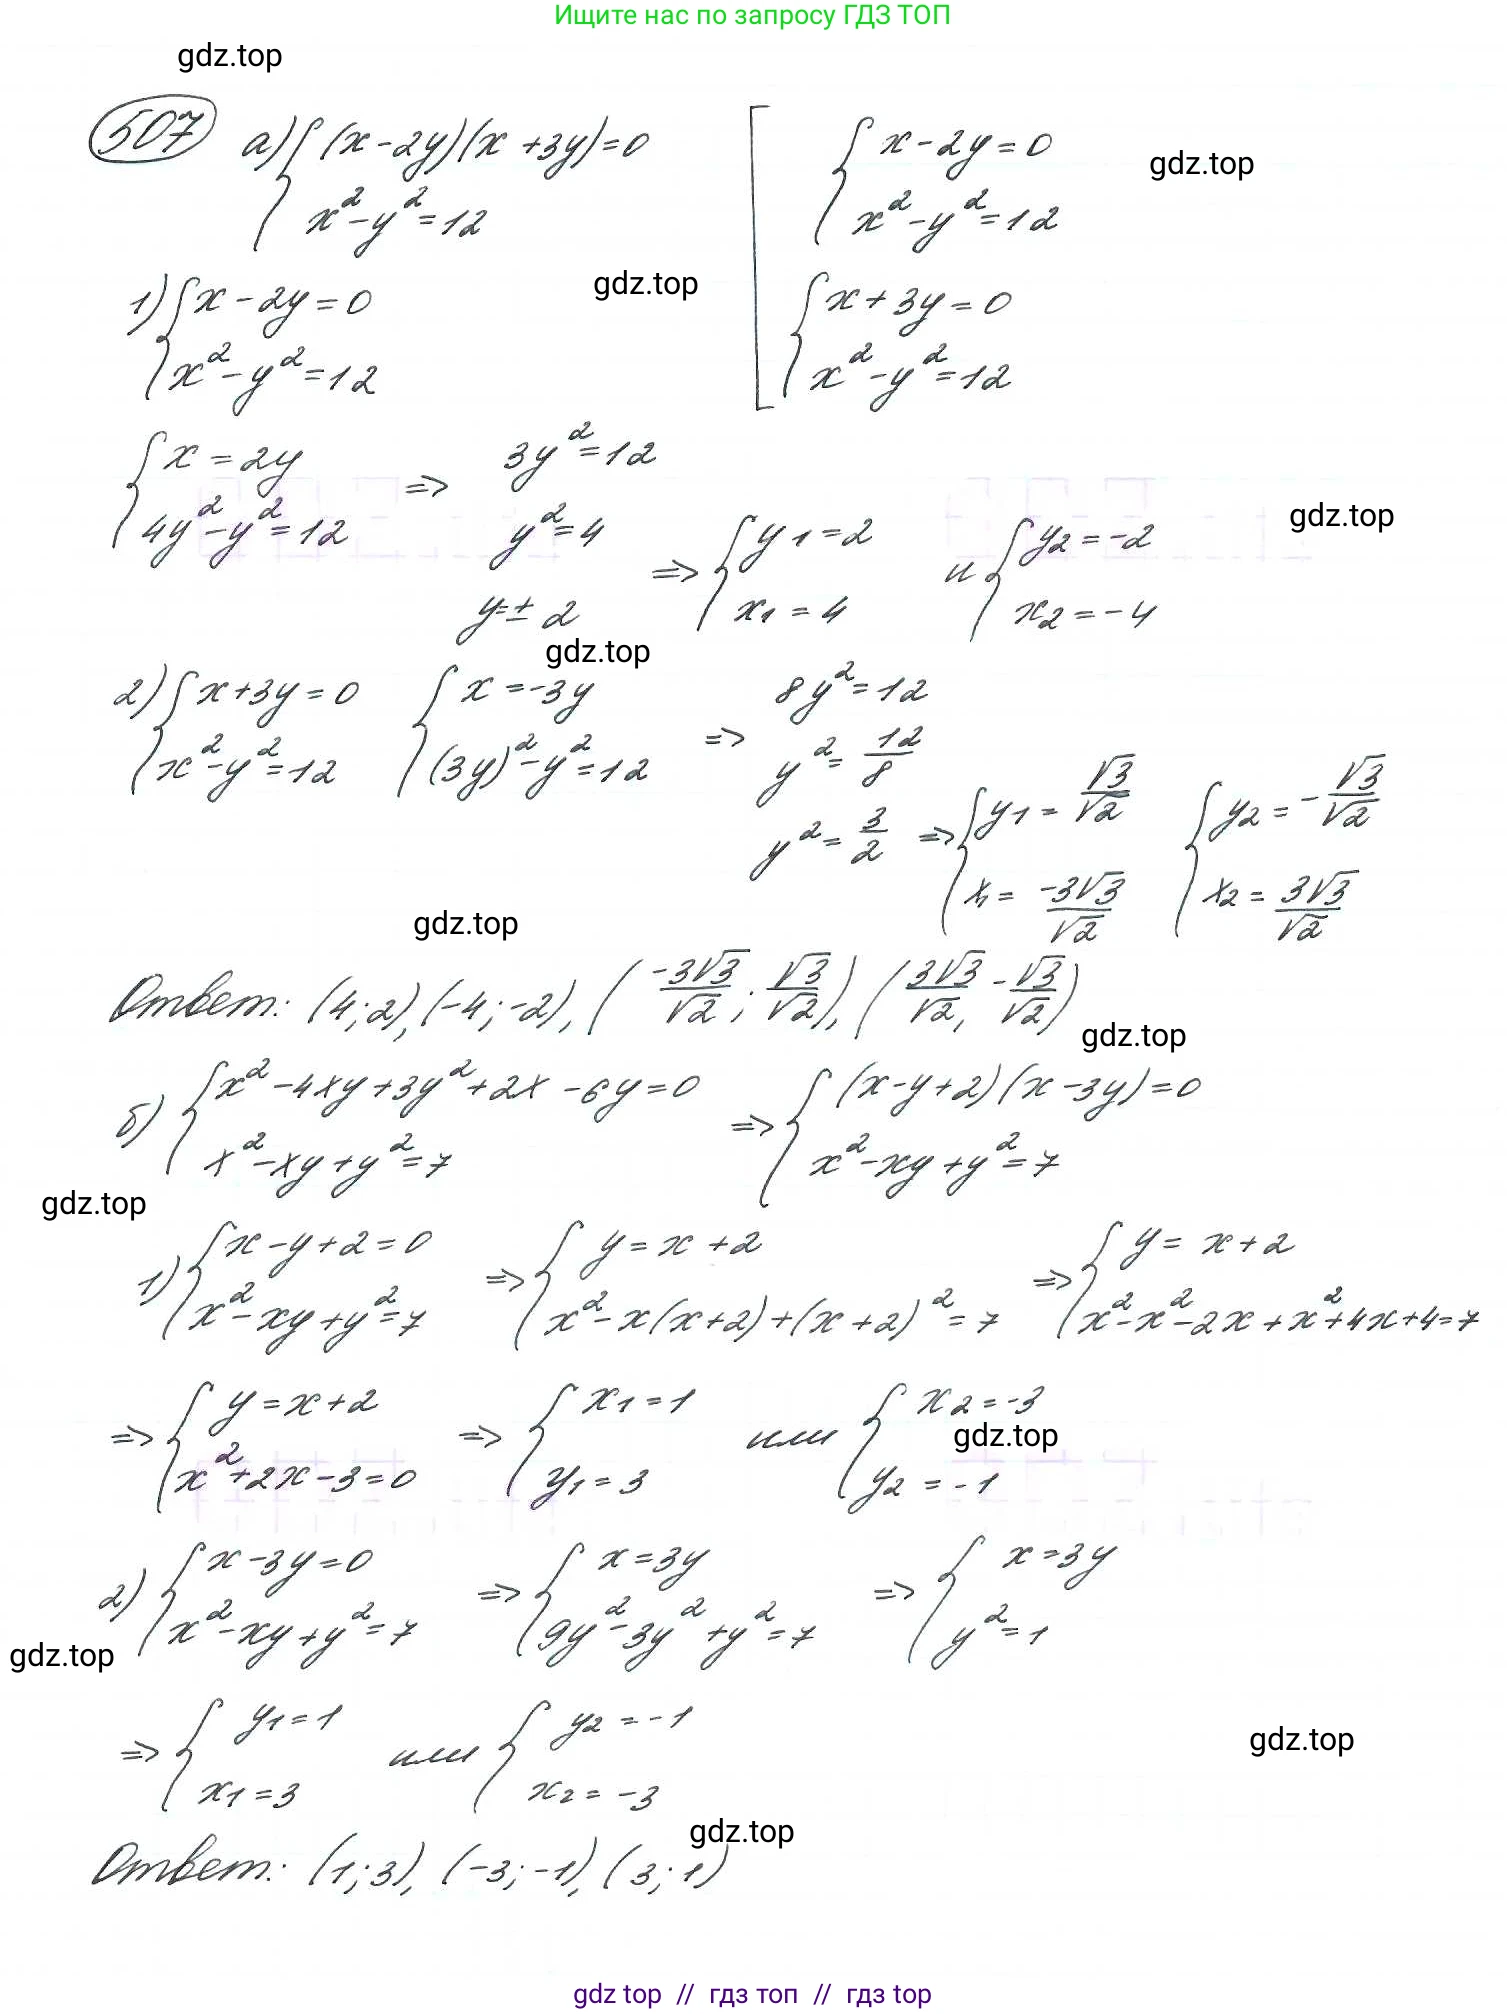 Ищите нас по запросу ГДЗ ТОП
gdz.top
507 а) { (x-2y)(x+3y)=0
x²-y²=12
[ { x-2y=0
x²-y²=12
gdz.top
{ x+3y=0
x²-y²=12
gdz.top
1) { x-2y=0
x²-y²=12
{ x=2y
4y²-y²=12
=> 3y²=12
y²=4
y=±2
=> { y1=2
x1=4
и { y2=-2
x2=-4
gdz.top
gdz.top
2) { x+3y=0
x²-y²=12
{ x=-3y
(3y)²-y²=12
=> 8y²=12
y²=12/8
y²=3/2
=> { y1=√3/√2
x1=-3√3/√2
{ y2=-√3/√2
x2=3√3/√2
gdz.top
Ответ: (4;2), (-4;-2), (-3√3/√2; √3/√2), (3√3/√2, -√3/√2)
gdz.top
б) { x²-4xy+3y²+2x-6y=0
x²-xy+y²=7
=> { (x-y+2)(x-3y)=0
x²-xy+y²=7
gdz.top
1) { x-y+2=0
x²-xy+y²=7
=> { y=x+2
x²-x(x+2)+(x+2)²=7
=> { y=x+2
x²-x²-2x+x²+4x+4=7
=> { y=x+2
x²+2x-3=0
=> { x1=1
y1=3
или { x2=-3
y2=-1
gdz.top
2) { x-3y=0
x²-xy+y²=7
=> { x=3y
9y²-3y²+y²=7
=> { x=3y
y²=1
gdz.top
=> { y1=1
x1=3
или { y2=-1
x2=-3
gdz.top
gdz.top
Ответ: (1;3), (-3;-1), (3;1)
gdz top // гдз топ // гдз top